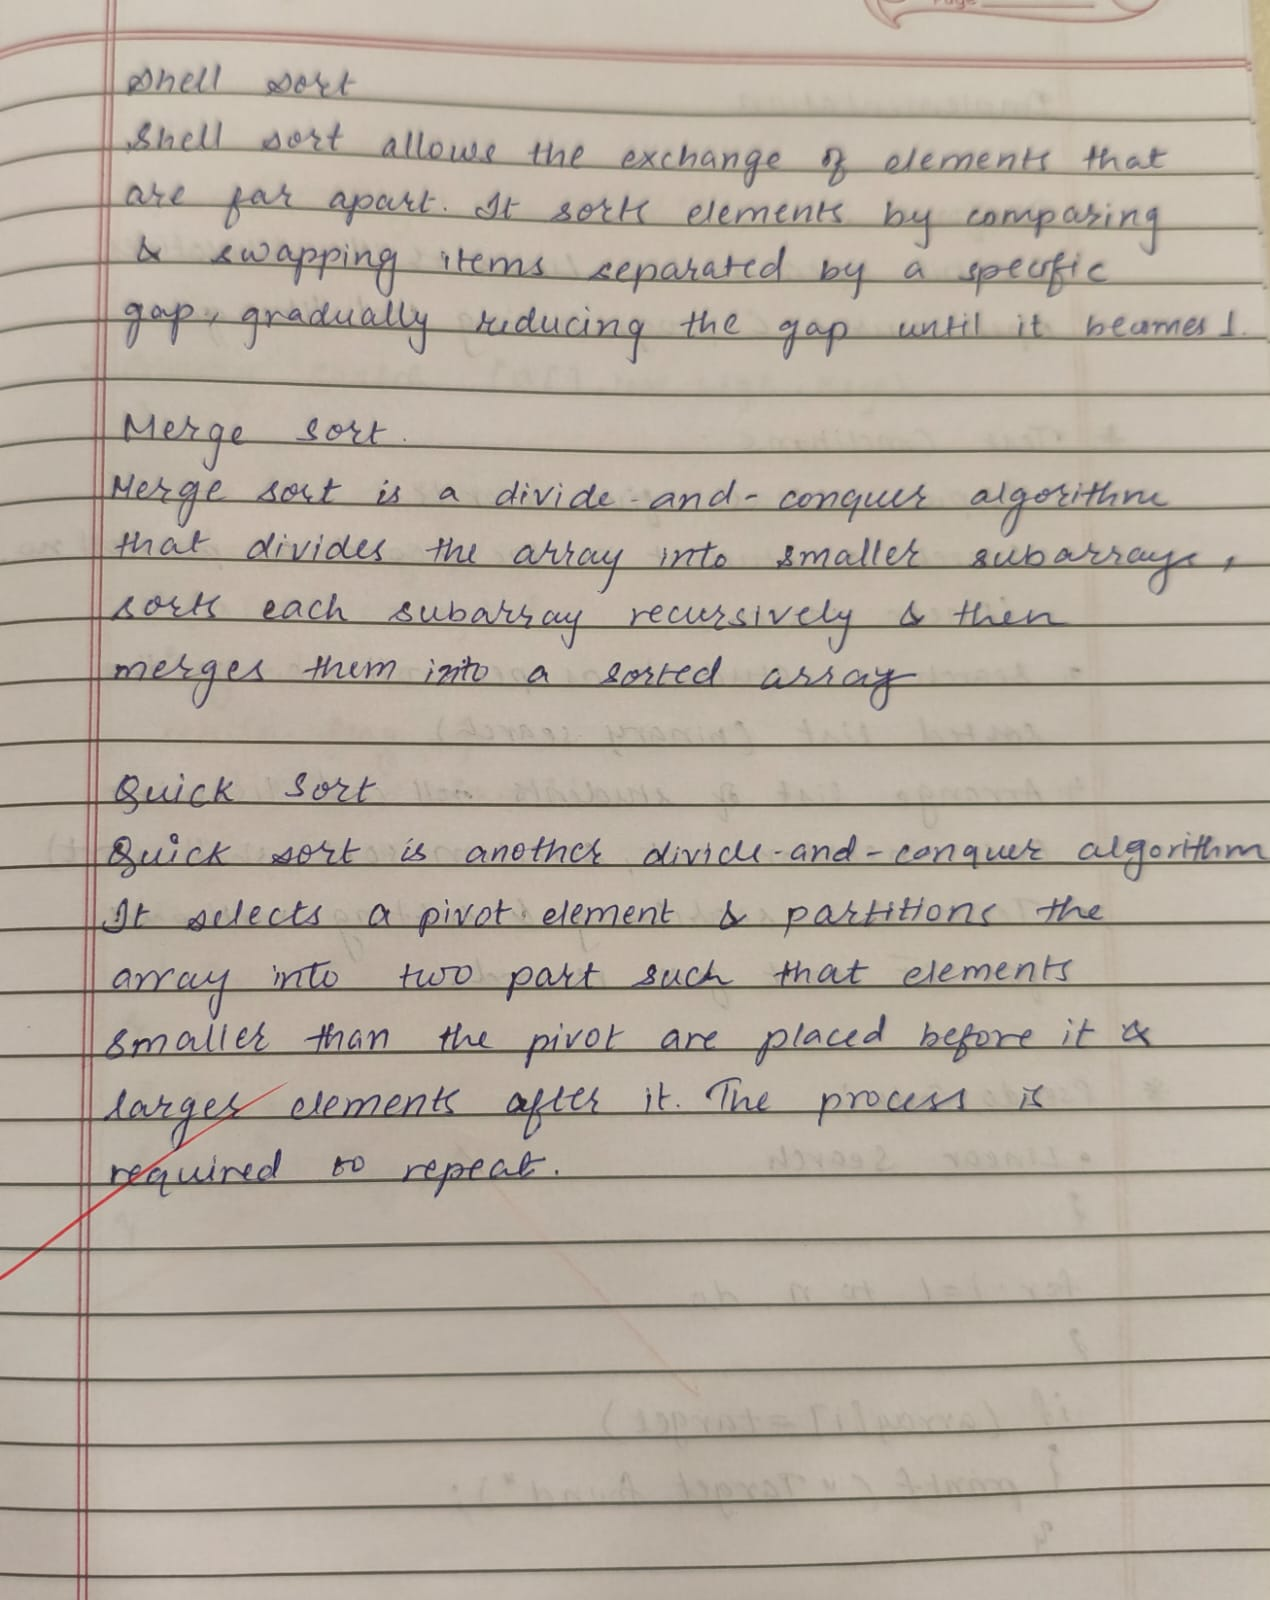 Page
Shell sort
Shell sort allows the exchange of elements that
are far apart. It sorts elements by comparing
& swapping items separated by a specific
gap, gradually reducing the gap until it beames 1.
Merge sort.
Merge sort is a divide-and-conquer algorithm
that divides the array into smaller subarrays,
sorts each subarray recursively & then
merges them into a sorted array
Quick Sort
Quick sort is another divide-and-conquer algorithm
It selects a pivot element & partitions the
array into two part such that elements
smaller than the pivot are placed before it &
larger elements after it. The process is
required to repeat.